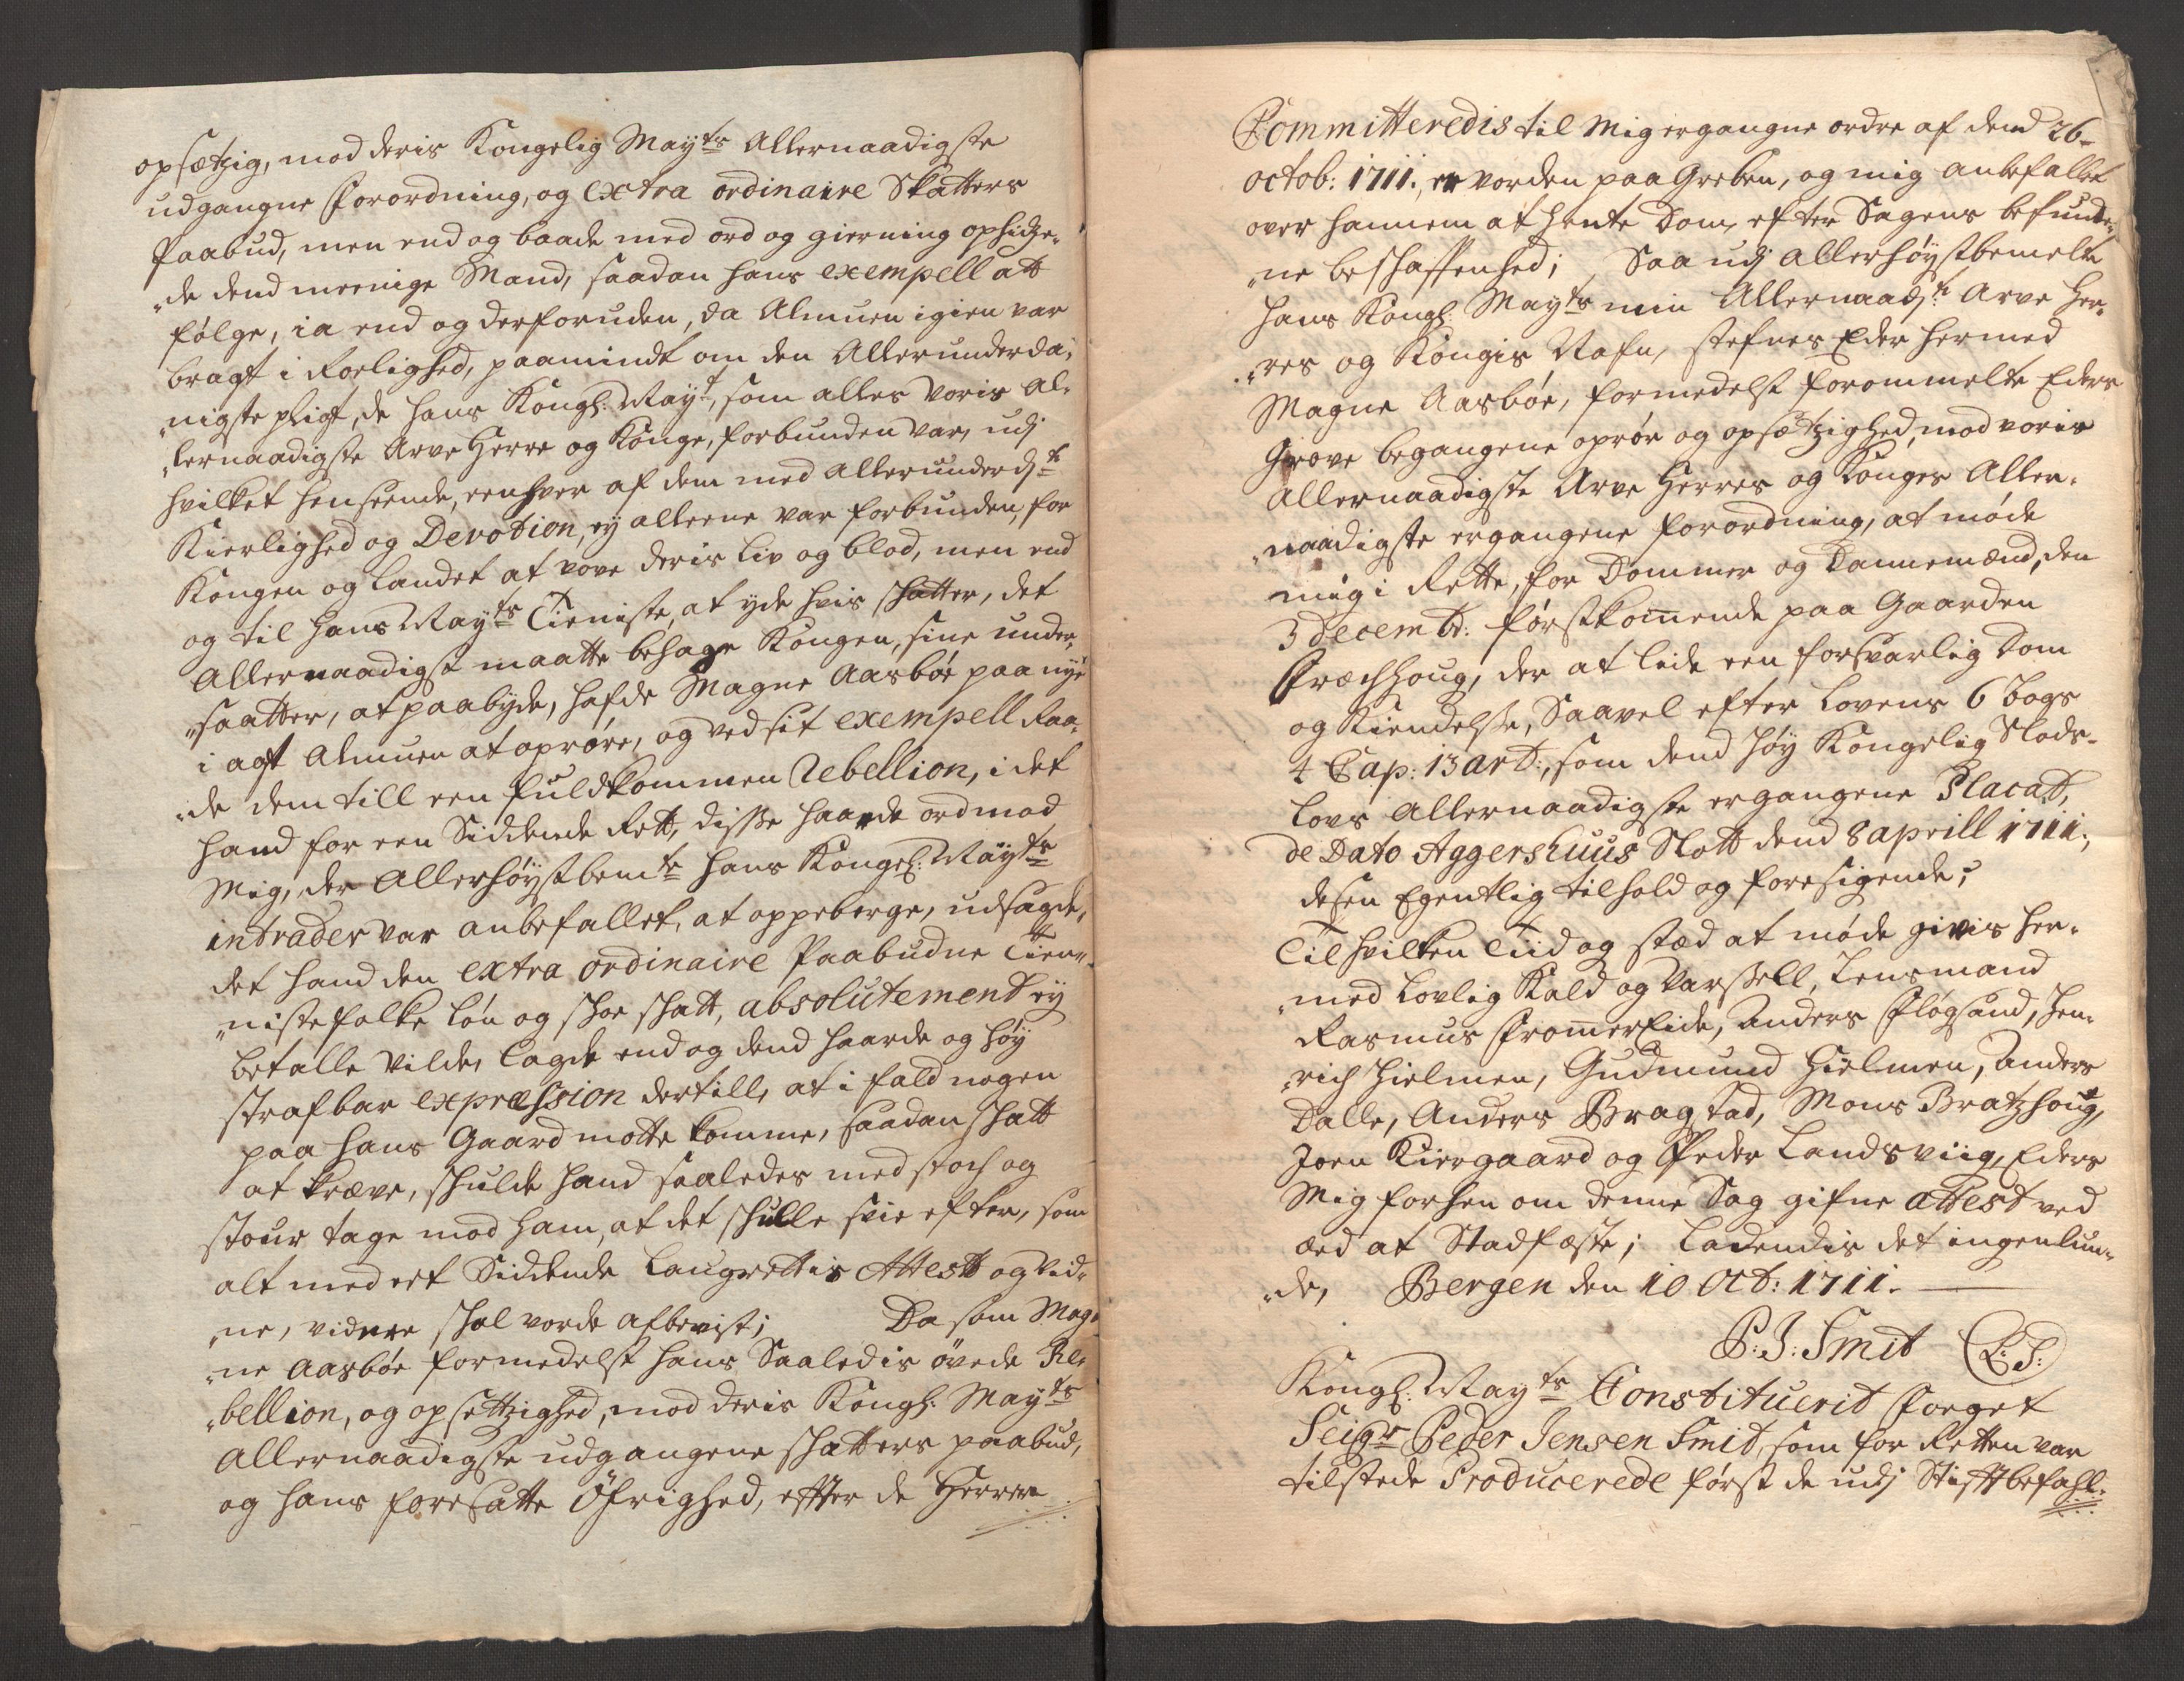 opsætzig, mod deris Kongelig Mayts Allernaadigste
udgangne Forordning, og extra ordinaire Skatters
Paabud, men end og baade med ord og gierning ophidze-
„de dend meenige Mand, saadan hans exempell att
følge, ia end og derforuden, da Almuen igien var
bragt i Roelighed, paamindt om den Allerunderda-
„nigste pligt, de hans Kongl: Mayt, som alles voris Al-
„lernaadigste Arve Herre og Konge, forbunden var, udj
hvilket henseende, eenhver af dem med allerunderd:ste
Kierlighed og Devotion, ej alleene var forbunden, for
Kongen og Landet at vove deris liv og blod, men end
og til hans Mayts Tieniste, at yde hvis schatter, det
Allernaadigst maatte behage Kongen, sine under-
„saatter, at paabyde, hafde Magne Aarsbøe paa nye
i agt Almuen at oprøre, og ved sit exempell Raa-
„de dem till een fuldkommen Rebellion, i det
hand for een Siddende Rett, disse haarde ord mod
Mig, der Allerhøystbemte hans Kongel: Mayts
intrader var anbefallet, at oppeberge, udsagde,
det hand den extra ordinaire Paabudne Tien-
„nistefolke løn og schoe schatt, absolutement ej
betalle vilde, lagde end og dend haarde og høy
strafbar expression dertill, at i fald nogen
paa hans Gaard motte komme, saadan schatt
at kræve, schulde hand saaledes med stoch og
stour tage mod ham, at det schulle svie efter, som
alt med et Siddende Laugrettis Attest og Vid-
„ne, vidnere schal vorde afbevist; Da som Mag-
„ne Aarsbøe formedelst hans Saaledis øvede Re-
„bellion, og opsettzighed, mod deris Kongl: Mayts
Allernaadigste udgangene schatters paabud,
og hans foresatte Øfrighed, effter de Herrer
Committeredis til Mig ergangne ordre af dend 26-
octob: 1711. er vorden paa Greben, og mig anbefallet
over hannem at hente Dom, efter Sagens befunde-
„ne beschaffenhed; Saa udj allerhøystbemelte
hans Kongl: Mayts min Allernaad:ste Arve Her-
„res og Kongis Nafn, stefnes Eder hermed
Magne Aarsbøe, formedelst forommelte Eders
Grove begangene oprør og opsætzighed, mod voris
Allernaadigste Arve Herres og Konges Aller-
„naadigste ergangene forordning, at møde
mig i Rette, for Dommer og Dannemænd, den
3 Decembr: førstkommende paa Gaarden
Fræchhoug, der at lide een forsvarlig Dom
og Kiendelsse, Saavel efter Lovens 6 bogs
4 Cap: 13 art:, som dend høy Kongelig Slods-
Lovs Allernaadigste ergangene Placat,
de Dato Aggershuus Slott dend 8 aprill 1711;
desen Egentlig tilhold og foresigende;
Til hvilken Tiid og stæd at møde givis her-
„med lovlig Kald og Varssell, Lensmand
Rasmus Fromereide, Anders Fløgsand, Hen-
„rich Hielmen, Gudmund Hielmen, Anders
Dalle, Anders Bragstad, Mons Bratzhoug,
Joen Kiergaard og Peder Landsviig, Eders
Mig forhen om denne Sag gifne attest ved
æed at Stadfæste; Ladendis det ingenlun-
„de, Bergen den 10 Oct: 1711.
P: J: Smit (L:S:)
Kongl: Mayts Constituerit Foeget
Seigr Peder Jensen Smit, som for Retten var
tilstede Producerede først de udj Stifftbefahl-